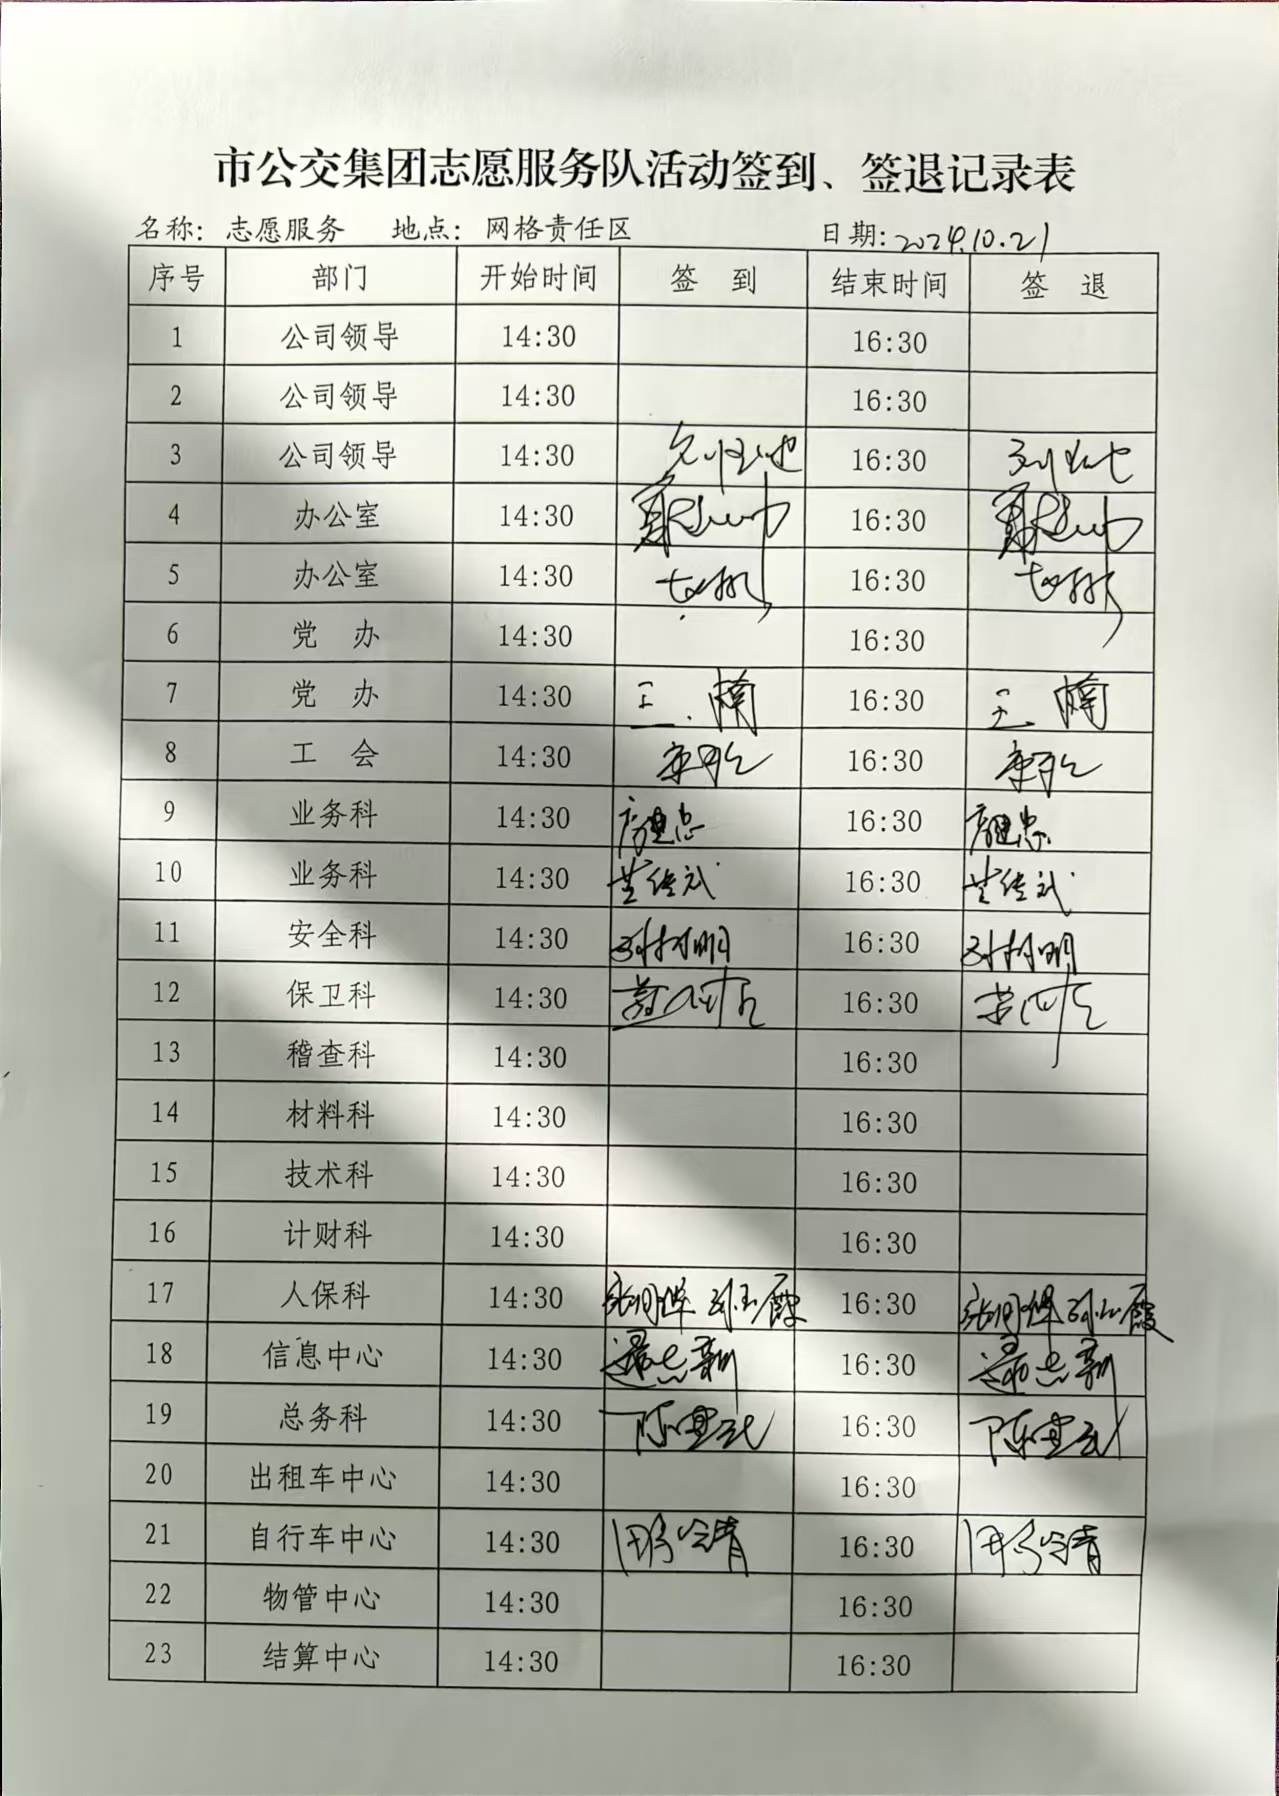 市公交集团志愿服务队活动签到、签退记录表
名称：志愿服务 地点：网格责任区 日期：2024.10.21
序号 部门 开始时间 签 到 结束时间 签 退
1 公司领导 14:30 16:30
2 公司领导 14:30 16:30
3 公司领导 14:30 16:30
4 办公室 14:30 16:30
5 办公室 14:30 16:30
6 党 办 14:30 16:30
7 党 办 14:30 王楠 16:30 王楠
8 工 会 14:30 16:30
9 业务科 14:30 16:30
10 业务科 14:30 16:30
11 安全科 14:30 刘树明 16:30 刘树明
12 保卫科 14:30 16:30
13 稽查科 14:30 16:30
14 材料科 14:30 16:30
15 技术科 14:30 16:30
16 计财科 14:30 16:30
17 人保科 14:30 刘玉霞 16:30 刘玉霞
18 信息中心 14:30 16:30
19 总务科 14:30 16:30
20 出租车中心 14:30 16:30
21 自行车中心 14:30 16:30
22 物管中心 14:30 16:30
23 结算中心 14:30 16:30